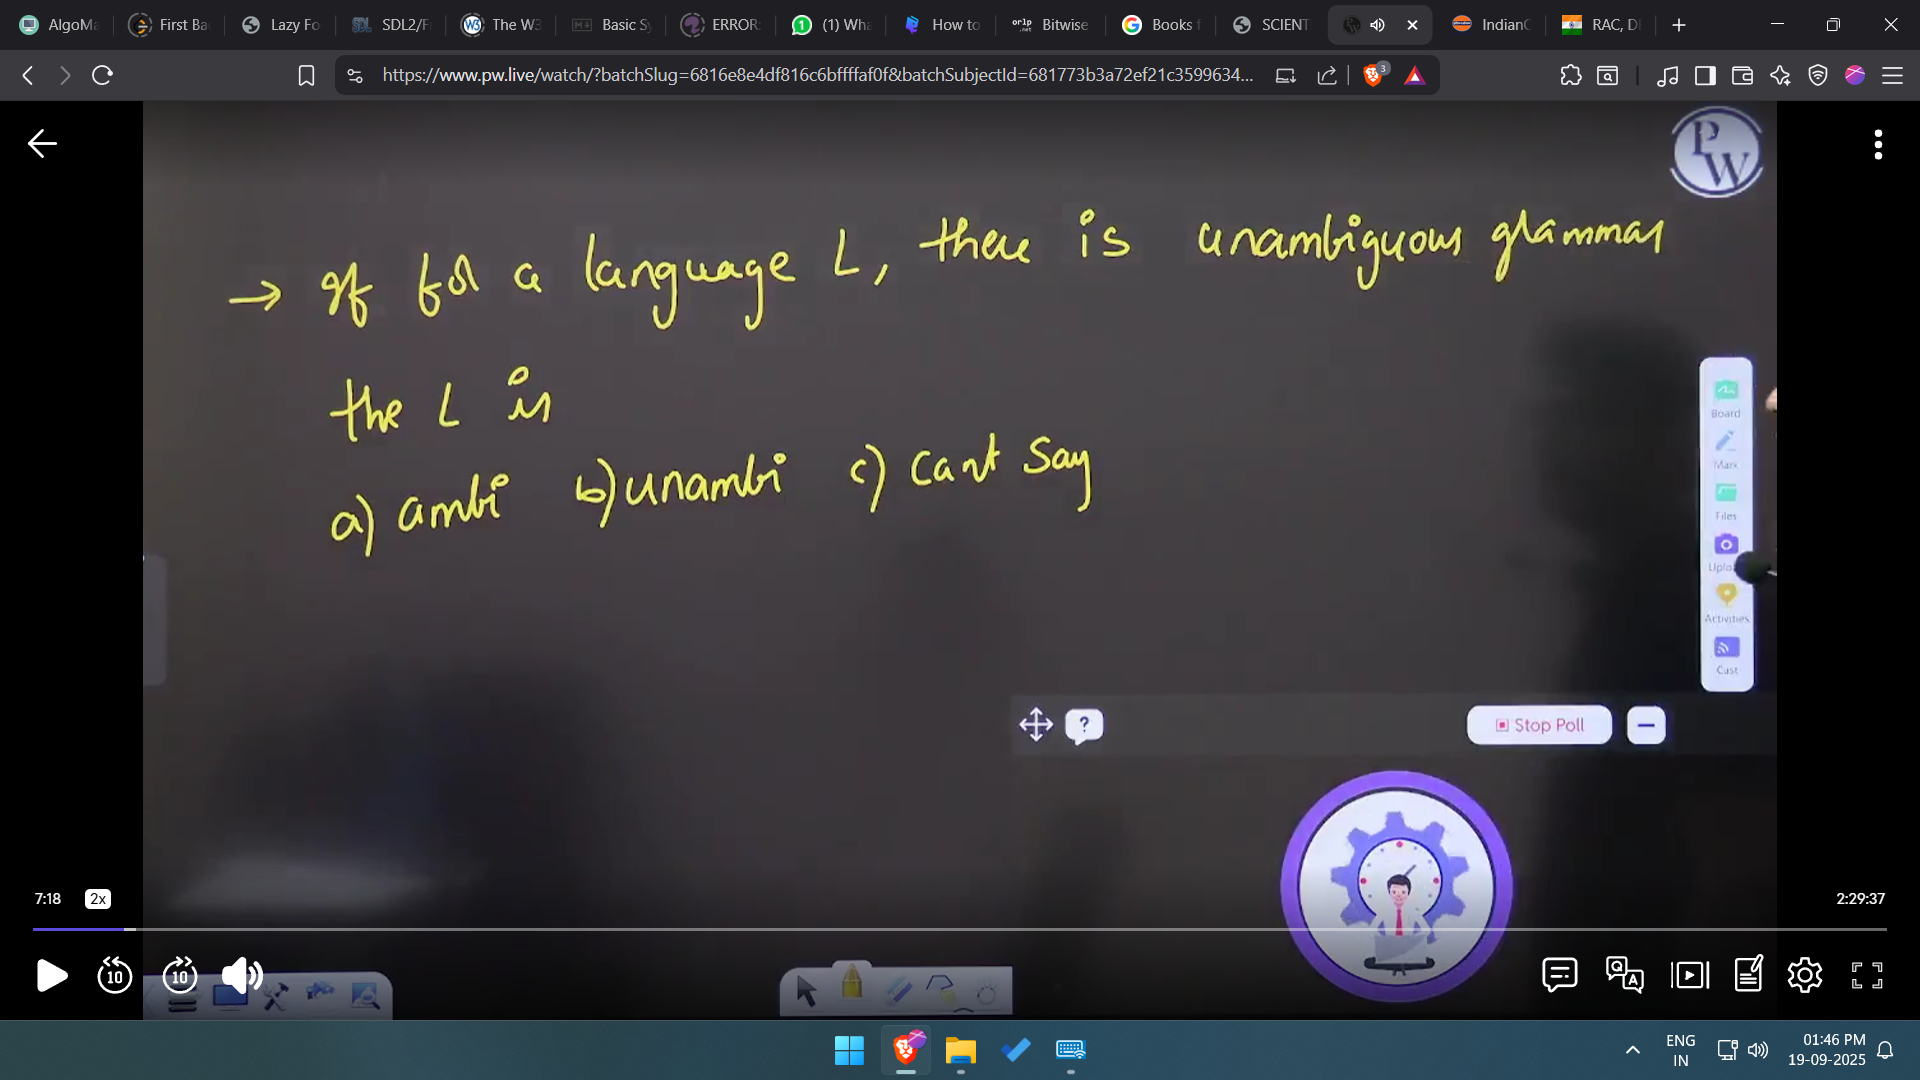 AlgoMa
First Ba
Lazy Fo
SDL2/F
The W3
Basic Sy
ERROR:
(1) Wha
How to
Bitwise
Books f
SCIENT
IndianC
RAC, D
https://www.pw.live/watch/?batchSlug=6816e8e4df816c6bffffaf0f&batchSubjectId=681773b3a72ef21c3599634...
3
PW
→ If for a language L, there is unambiguous grammar
the L is
a) ambi b) unambi c) cant say
Board
Mark
Files
Uplo
Activities
Cast
?
Stop Poll
7:18 2x
2:29:37
10
10
ENG
IN
01:46 PM
19-09-2025